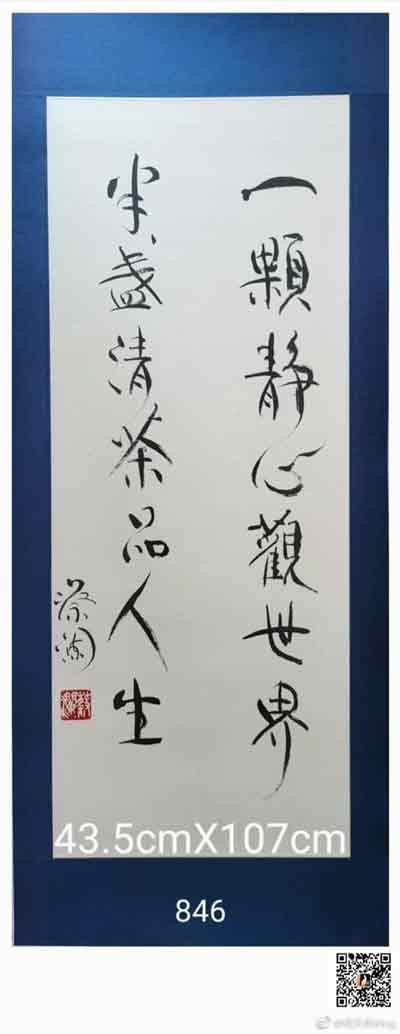 一顆静心觀世界
半盞清茶品人生
蔡瀾
43.5cmX107cm
846